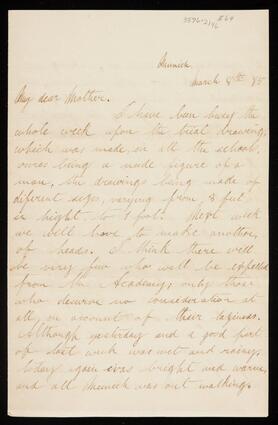 3596-2146 #64
Munich
March 8th 85
My dear Mother.
I have been busy the
whole week upon the trial drawing,
which was made, in all the schools,
ours being a nude figure of a
man, the drawings being made of
different sizes, varying from 3 feet
in hight to 1 foot. Next week
we will have to make another,
of heads. I think there will
be very few who will be expelled
from the Academy; only those
who deserve no consideration at
all, on account of their laziness.
Although yesterday and a good part
of last week was wet and rainy,
today again was bright and warm,
and all Munich was out walking.